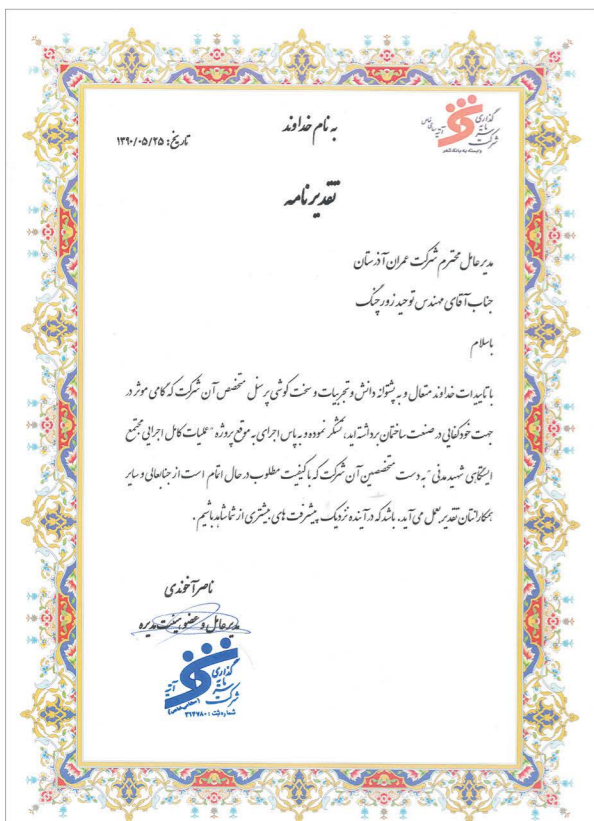 به نام خداوند
تاریخ: ۱۳۹۰/۰۵/۲۵
شرکت سرمایه گذاری
آتیه
وابسته به بانک شهر
تقدیرنامه
مدیرعامل محترم شرکت عمران آذرستان
جناب آقای مهندس توحید زورچنگ
باسلام
با تاییدات خداوند متعال و به پشتوانه دانش و تجربیات و سخت کوشی پرسنل متخصص آن شرکت که گامی موثر در
جهت خودکفایی در صنعت ساختمان برداشته اید، تشکر نموده و به پاس اجرای به موقع پروژه "عملیات کامل اجرایی مجتمع
ایستگاهی شهید مدنی" به دست متخصصین آن شرکت که با کیفیت مطلوب در حال اتمام است از جنابعالی و سایر
همکارانتان تقدیر بعمل می آید، باشد که در آینده نزدیک پیشرفت های بیشتری از شما شاهد باشیم.
ناصر آخوندی
مدیرعامل و عضو هیئت مدیره
شرکت سرمایه گذاری
آتیه
(سهامی خاص)
شماره ثبت: ۳۶۴۷۸۰